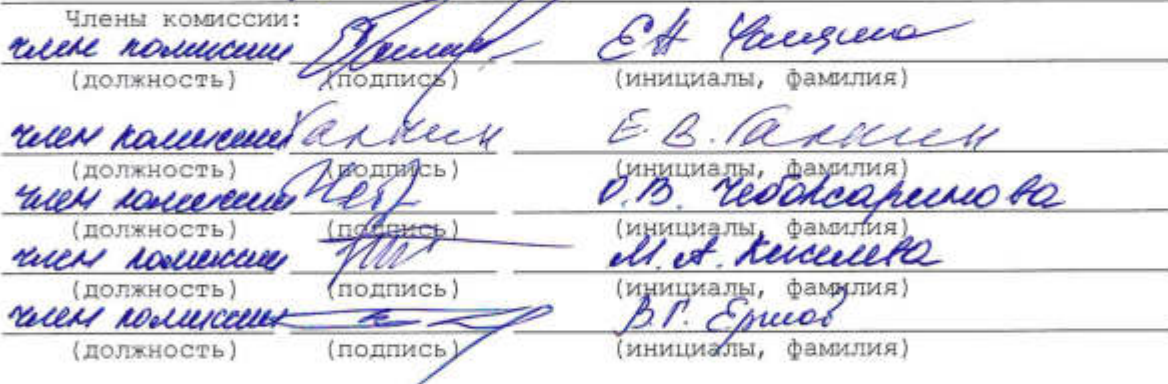 Члены комиссии:
член комиссии Е.Н.
(должность) (подпись) (инициалы, фамилия)
член комиссии Галкин Е.В. Галкин
(должность) (подпись) (инициалы, фамилия)
член комиссии Чеб О.В. Чебоксаринова
(должность) (подпись) (инициалы, фамилия)
член комиссии М.А. Киселева
(должность) (подпись) (инициалы, фамилия)
член комиссии В.Г. Ершов
(должность) (подпись) (инициалы, фамилия)